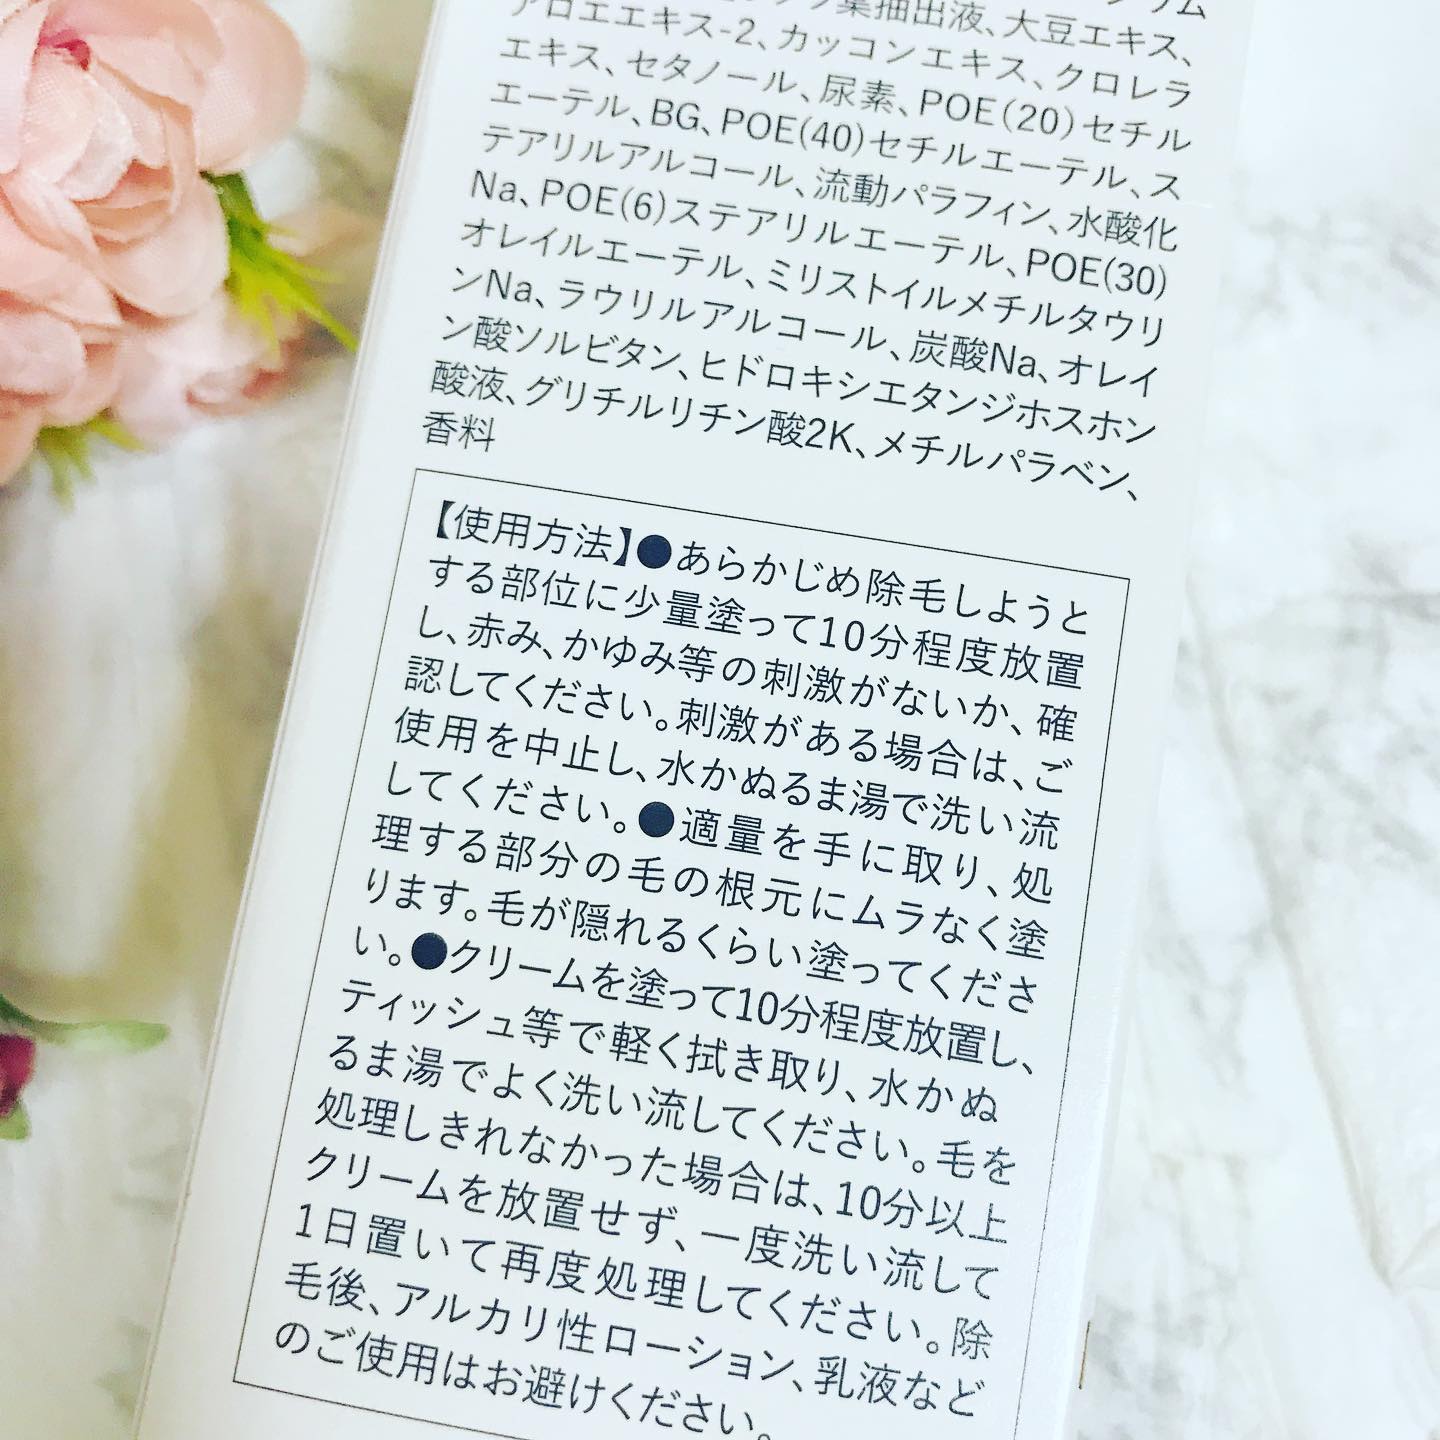 葉抽出液、大豆エキス、
アロエエキス-2、カッコンエキス、クロレラ
エキス、セタノール、尿素、POE(20)セチル
エーテル、BG、POE(40)セチルエーテル、ス
テアリルアルコール、流動パラフィン、水酸化
Na、POE(6)ステアリルエーテル、POE(30)
オレイルエーテル、ミリストイルメチルタウリ
ンNa、ラウリルアルコール、炭酸Na、オレイ
ン酸ソルビタン、ヒドロキシエタンジホスホン
酸液、グリチルリチン酸2K、メチルパラベン、
香料
【使用方法】●あらかじめ除毛しようと
する部位に少量塗って10分程度放置
し、赤み、かゆみ等の刺激がないか、確
認してください。刺激がある場合は、ご
使用を中止し、水かぬるま湯で洗い流
してください。●適量を手に取り、処
理する部分の毛の根元にムラなく塗
ります。毛が隠れるくらい塗ってくださ
い。●クリームを塗って10分程度放置し、
ティッシュ等で軽く拭き取り、水かぬ
るま湯でよく洗い流してください。毛を
処理しきれなかった場合は、10分以上
クリームを放置せず、一度洗い流して
1日置いて再度処理してください。除
毛後、アルカリ性ローション、乳液など
のご使用はお避けください。